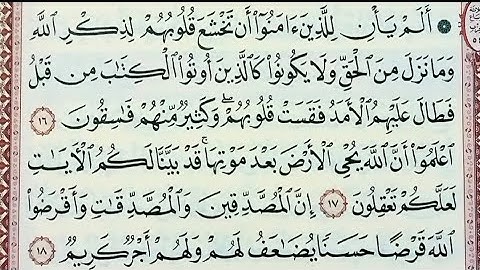 ۞ أَلَمْ يَأْنِ لِلَّذِينَ ءَامَنُوٓا۟ أَن تَخْشَعَ قُلُوبُهُمْ لِذِكْرِ ٱللَّهِ
وَمَا نَزَلَ مِنَ ٱلْحَقِّ وَلَا يَكُونُوا۟ كَٱلَّذِينَ أُوتُوا۟ ٱلْكِتَٰبَ مِن قَبْلُ
فَطَالَ عَلَيْهِمُ ٱلْأَمَدُ فَقَسَتْ قُلُوبُهُمْ ۖ وَكَثِيرٌ مِّنْهُمْ فَٰسِقُونَ ١٦
ٱعْلَمُوٓا۟ أَنَّ ٱللَّهَ يُحْىِ ٱلْأَرْضَ بَعْدَ مَوْتِهَا ۚ قَدْ بَيَّنَّا لَكُمُ ٱلْـَٔايَٰتِ
لَعَلَّكُمْ تَعْقِلُونَ ١٧ إِنَّ ٱلْمُصَّدِّقِينَ وَٱلْمُصَّدِّقَٰتِ وَأَقْرَضُوا۟
ٱللَّهَ قَرْضًا حَسَنًا يُضَٰعَفُ لَهُمْ وَلَهُمْ أَجْرٌ كَرِيمٌ ١٨